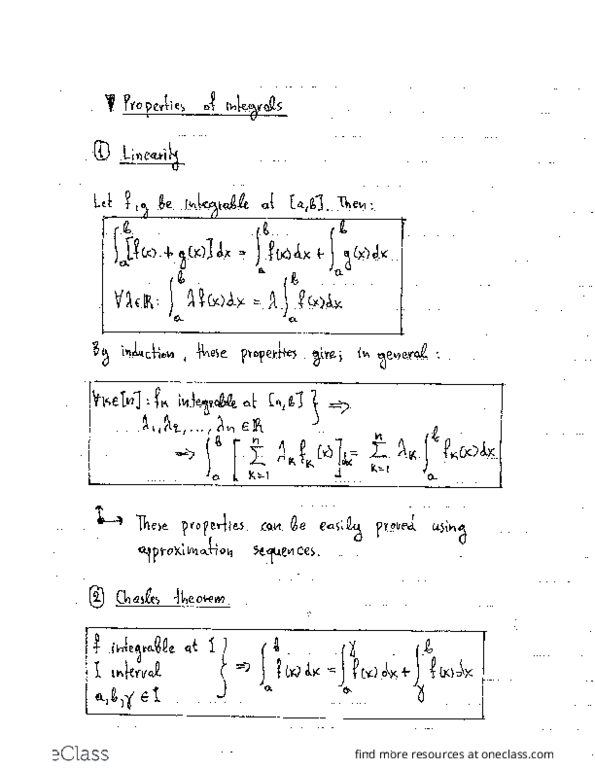 ▼ Properties of integrals
① Linearity
Let f,g be integrable at [a,b]. Then:
∫_a^b [f(x) + g(x)] dx = ∫_a^b f(x) dx + ∫_a^b g(x) dx
∀λ∈ℝ: ∫_a^b λ f(x) dx = λ ∫_a^b f(x) dx
By induction, these properties give, in general:
∀k∈[n]: f_k integrable at [a,b] } ⇒
λ_1, λ_2, ..., λ_n ∈ ℝ
⇒ ∫_a^b [ Σ_{k=1}^n λ_k f_k(x) ] dx = Σ_{k=1}^n λ_k ∫_a^b f_k(x) dx
↳ These properties can be easily proved using
approximation sequences.
② Chasles theorem
f integrable at I
I interval } ⇒ ∫_a^b f(x) dx = ∫_a^γ f(x) dx + ∫_γ^b f(x) dx
a, b, γ ∈ I
eClass
find more resources at oneclass.com